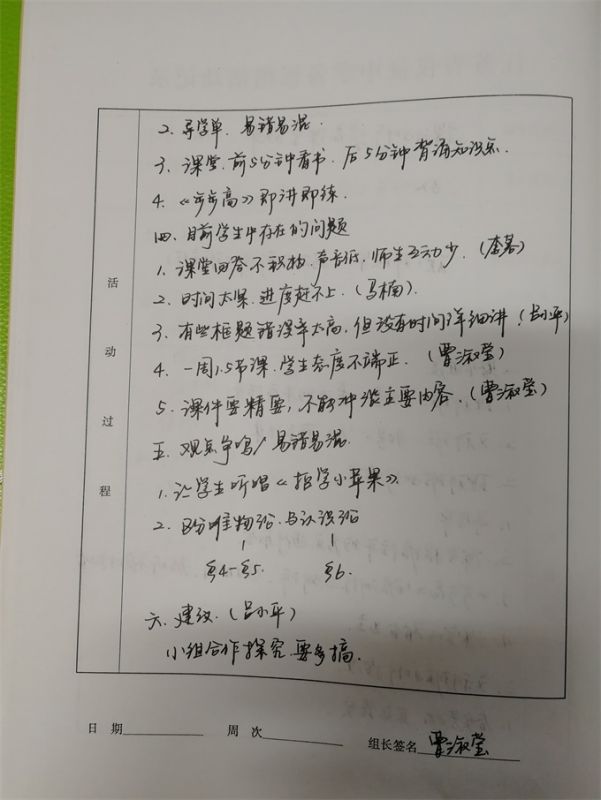 2. 导学单、易错易混.
3. 课堂、前5分钟看书、后5分钟背诵知识点.
4. 《步步高》即讲即练.
四、目前学生中存在的问题
1. 课堂回答不积极、声音低、师生互动少. (李
2. 时间太紧、进度赶不上. (马楠).
3. 有些框题错误率太高, 但没有时间详细讲! (吕小平)
4. 一周1.5节课、学生态度不端正. (曹淑莹)
5. 课件要精要, 不能冲淡主要内容. (曹淑莹)
五、观点争鸣/易错易混.
1. 让学生听唱《哲学小苹果》.
2. 区分唯物论与认识论
§4-§5. §6.
六、建议. (吕小平)
小组合作探究要多搞.
活动过程
日 期 周 次 组长签名 曹淑莹